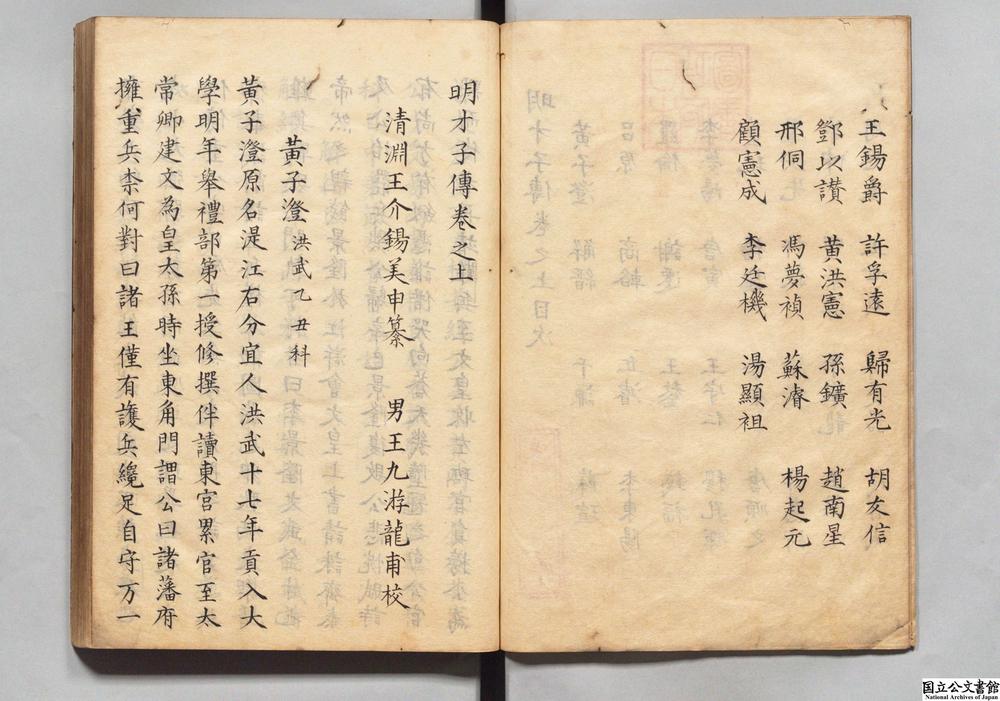 王錫爵 許孚遠 歸有光 胡友信
鄧以讃 黄洪憲 孫鑛 趙南星
邢侗 馮夢禎 蘇濬 楊起元
顧憲成 李廷機 湯顯祖
明才子傳卷之上
清淵王介錫美申纂 男王九游龍甫校
黃子澄 洪武乙丑科
黃子澄原名湜江右分宜人洪武十七年貢入大
學明年舉禮部第一授修撰伴讀東宮累官至太
常卿建文為皇太孫時坐東角門謂公曰諸藩府
擁重兵柰何對曰諸王僅有護兵纔足自守万一
国立公文書館
National Archives of Japan